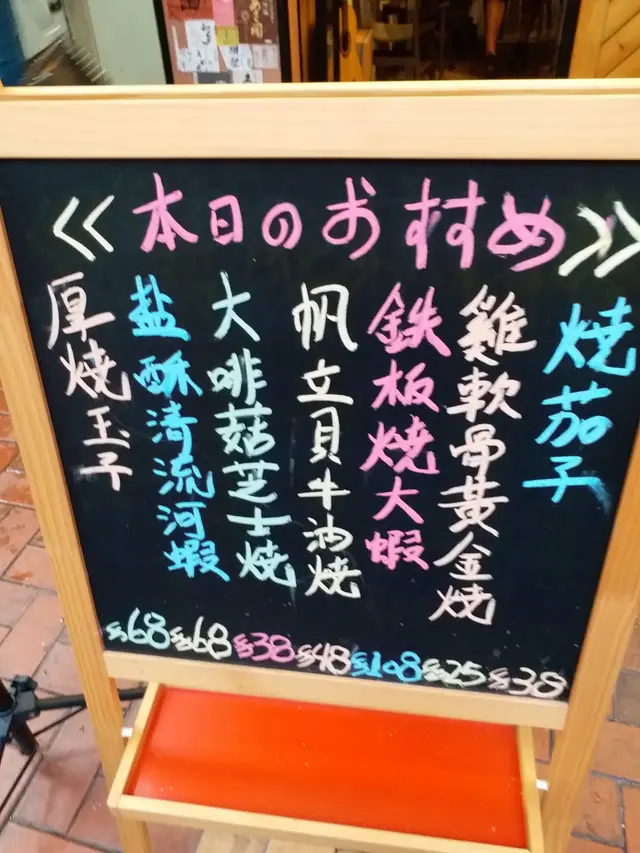 <<本日のおすすめ>>
焼茄子
雞軟骨黃金燒
鉄板燒大蝦
帆立貝牛油燒
大啡菇芝士燒
盐酥清流河蝦
厚燒玉子
$68 $68 $38 $48 $108 $25 $38